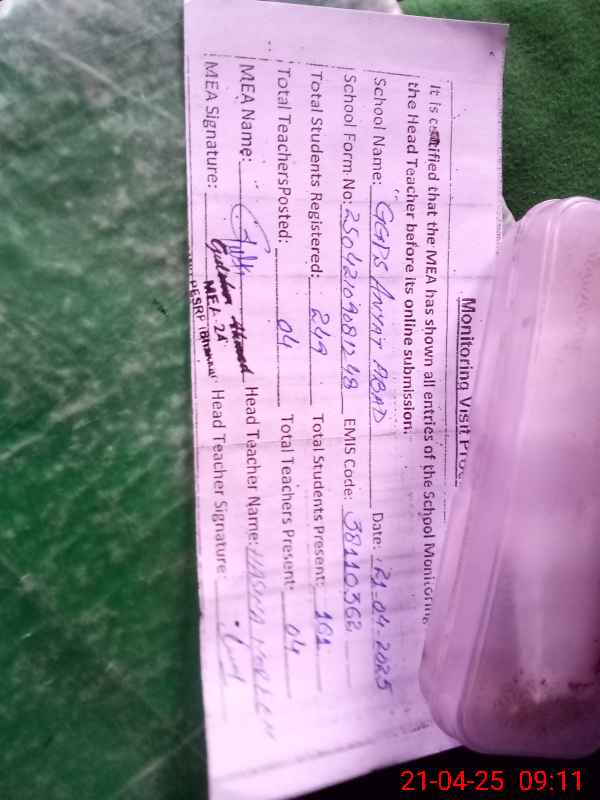 Monitoring Visit
It is certified that the MEA has shown all entries of the School Monitoring
the Head Teacher before its online submission.
School Name: GGPS Anyat ABAD Date: 21-04-2025
School Form No: EMIS Code: 38110362
Total Students Registered: 249 Total Students Present: 161
Total TeachersPosted: 04 Total Teachers Present: 04
MEA Name: Head Teacher Name:
MEA Signature: Head Teacher Signature:
Ahmed
MEA 2A
PESRP
21-04-25 09:11